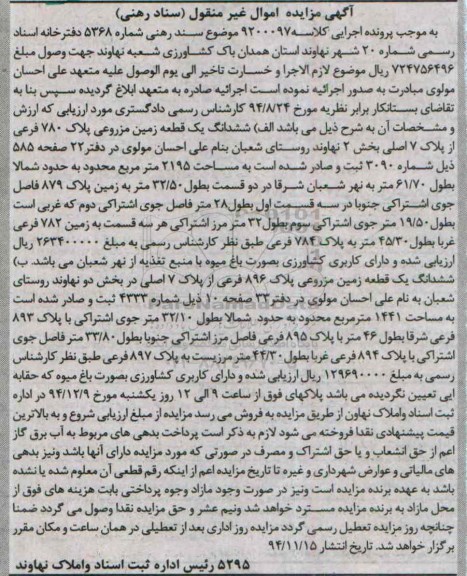 آگهی مزایده اموال غیر منقول (سناد رهنی)
به موجب پرونده اجرایی کلاسه ۹۲۰۰۰۹۷ موضوع سند رهنی شماره ۵۳۶۸ دفترخانه اسناد
رسمی شماره ۲۰ شهر نهاوند استان همدان باک کشاورزی شعبه نهاوند جهت وصول مبلغ
۷۲۴۷۵۶۴۹۶ ریال موضوع لازم الاجرا و خسارت تاخیر الی یوم الوصول علیه متعهد علی احسان
مولوی مبادرت به صدور اجرائیه نموده است اجرائیه صادره به متعهد ابلاغ گردیده سپس بنا به
تقاضای بستانکار برابر نظریه مورخ ۹۴/۸/۲۴ کارشناس رسمی دادگستری مورد ارزیابی که ارزش
و مشخصات آن به شرح ذیل می باشد الف) ششدانگ یک قطعه زمین مزروعی پلاک ۷۸۰ فرعی
از پلاک ۷ اصلی بخش ۲ نهاوند روستای شعبان بنام علی احسان مولوی در دفتر ۲۲ صفحه ۵۸۵
ذیل شماره ۳۰۹۰ ثبت و صادر شده است به مساحت ۲۱۹۵ متر مربع محدود به حدود شمالا
بطول ۶۱/۷۰ متر به نهر شعبان شرقا در دو قسمت بطول ۳۲/۵۰ متر به زمین پلاک ۸۷۹ فاصل
جوی اشتراکی جنوبا در سه قسمت اول بطول ۲۸ متر فاصل جوی اشتراکی دوم که غربی است
بطول ۱۹/۵۰ متر جوی اشتراکی سوم بطول ۳۲ متر مرز اشتراکی هر سه قسمت به زمین ۷۸۲ فرعی
غربا بطول ۴۵/۳۰ متر به پلاک ۷۸۴ فرعی طبق نظر کارشناس رسمی به مبلغ ۲۶۳۴۰۰۰۰۰ ریال
ارزیابی شده و دارای کاربری کشاورزی بصورت باغ میوه با منبع تغذیه از نهر شعبان می باشد. ب)
ششدانگ یک قطعه زمین مزروعی پلاک ۸۹۶ فرعی از پلاک ۷ اصلی در بخش دو نهاوند روستای
شعبان به نام علی احسان مولوی در دفتر ۳۳ صفحه ۱۰ ذیل شماره ۴۳۳۳ ثبت و صادر شده است
به مساحت ۱۴۴۱ مترمربع محدود به حدود شمالا بطول ۳۲/۱۰ متر جوی اشتراکی با پلاک ۸۹۳
فرعی شرقا بطول ۴۶ متر با پلاک ۸۹۵ فرعی فاصل مرز اشتراکی جنوبا بطول ۳۳/۸۰ متر فاصل جوی
اشتراکی با پلاک ۸۹۴ فرعی غربا بطول ۴۴/۳۰ متر مرزیست به پلاک ۸۹۷ فرعی طبق نظر کارشناس
رسمی به مبلغ ۱۲۹۶۹۰۰۰۰ ریال ارزیابی شده و دارای کاربری کشاورزی بصورت باغ میوه که حقابه
ایی تعیین نگردیده می باشد پلاکهای فوق از ساعت ۹ الی ۱۲ روز یکشنبه مورخ ۹۴/۱۲/۹ در اداره
ثبت اسناد واملاک نهاون از طریق مزایده به فروش می رسد مزایده از مبلغ ارزیابی شروع و به بالاترین
قیمت پیشنهادی نقدا فروخته می شود لازم به ذکر است پرداخت بدهی های مربوط به آب برق گاز
اعم از حق انشعاب و یا حق اشتراک و مصرف در صورتی که مورد مزایده دارای آنها باشد ونیز بدهی
های مالیاتی و عوارض شهرداری و غیره تا تاریخ مزایده اعم از اینکه رقم قطعی آن معلوم شده یا نشده
باشد به عهده برنده مزایده است ونیز در صورت وجود مازاد وجوه پرداختی بابت هزینه های فوق از
محل مازاد به برنده مزایده مسترد خواهد شد ونیم عشر و حق مزایده نقدا وصول می گردد ضمنا
چنانچه روز مزایده تعطیل رسمی گردد مزایده روز اداری بعد از تعطیلی در همان ساعت و مکان مقرر
برگزار خواهد شد. تاریخ انتشار ۹۴/۱۱/۱۵
۵۲۹۵ رئیس اداره ثبت اسناد واملاک نهاوند